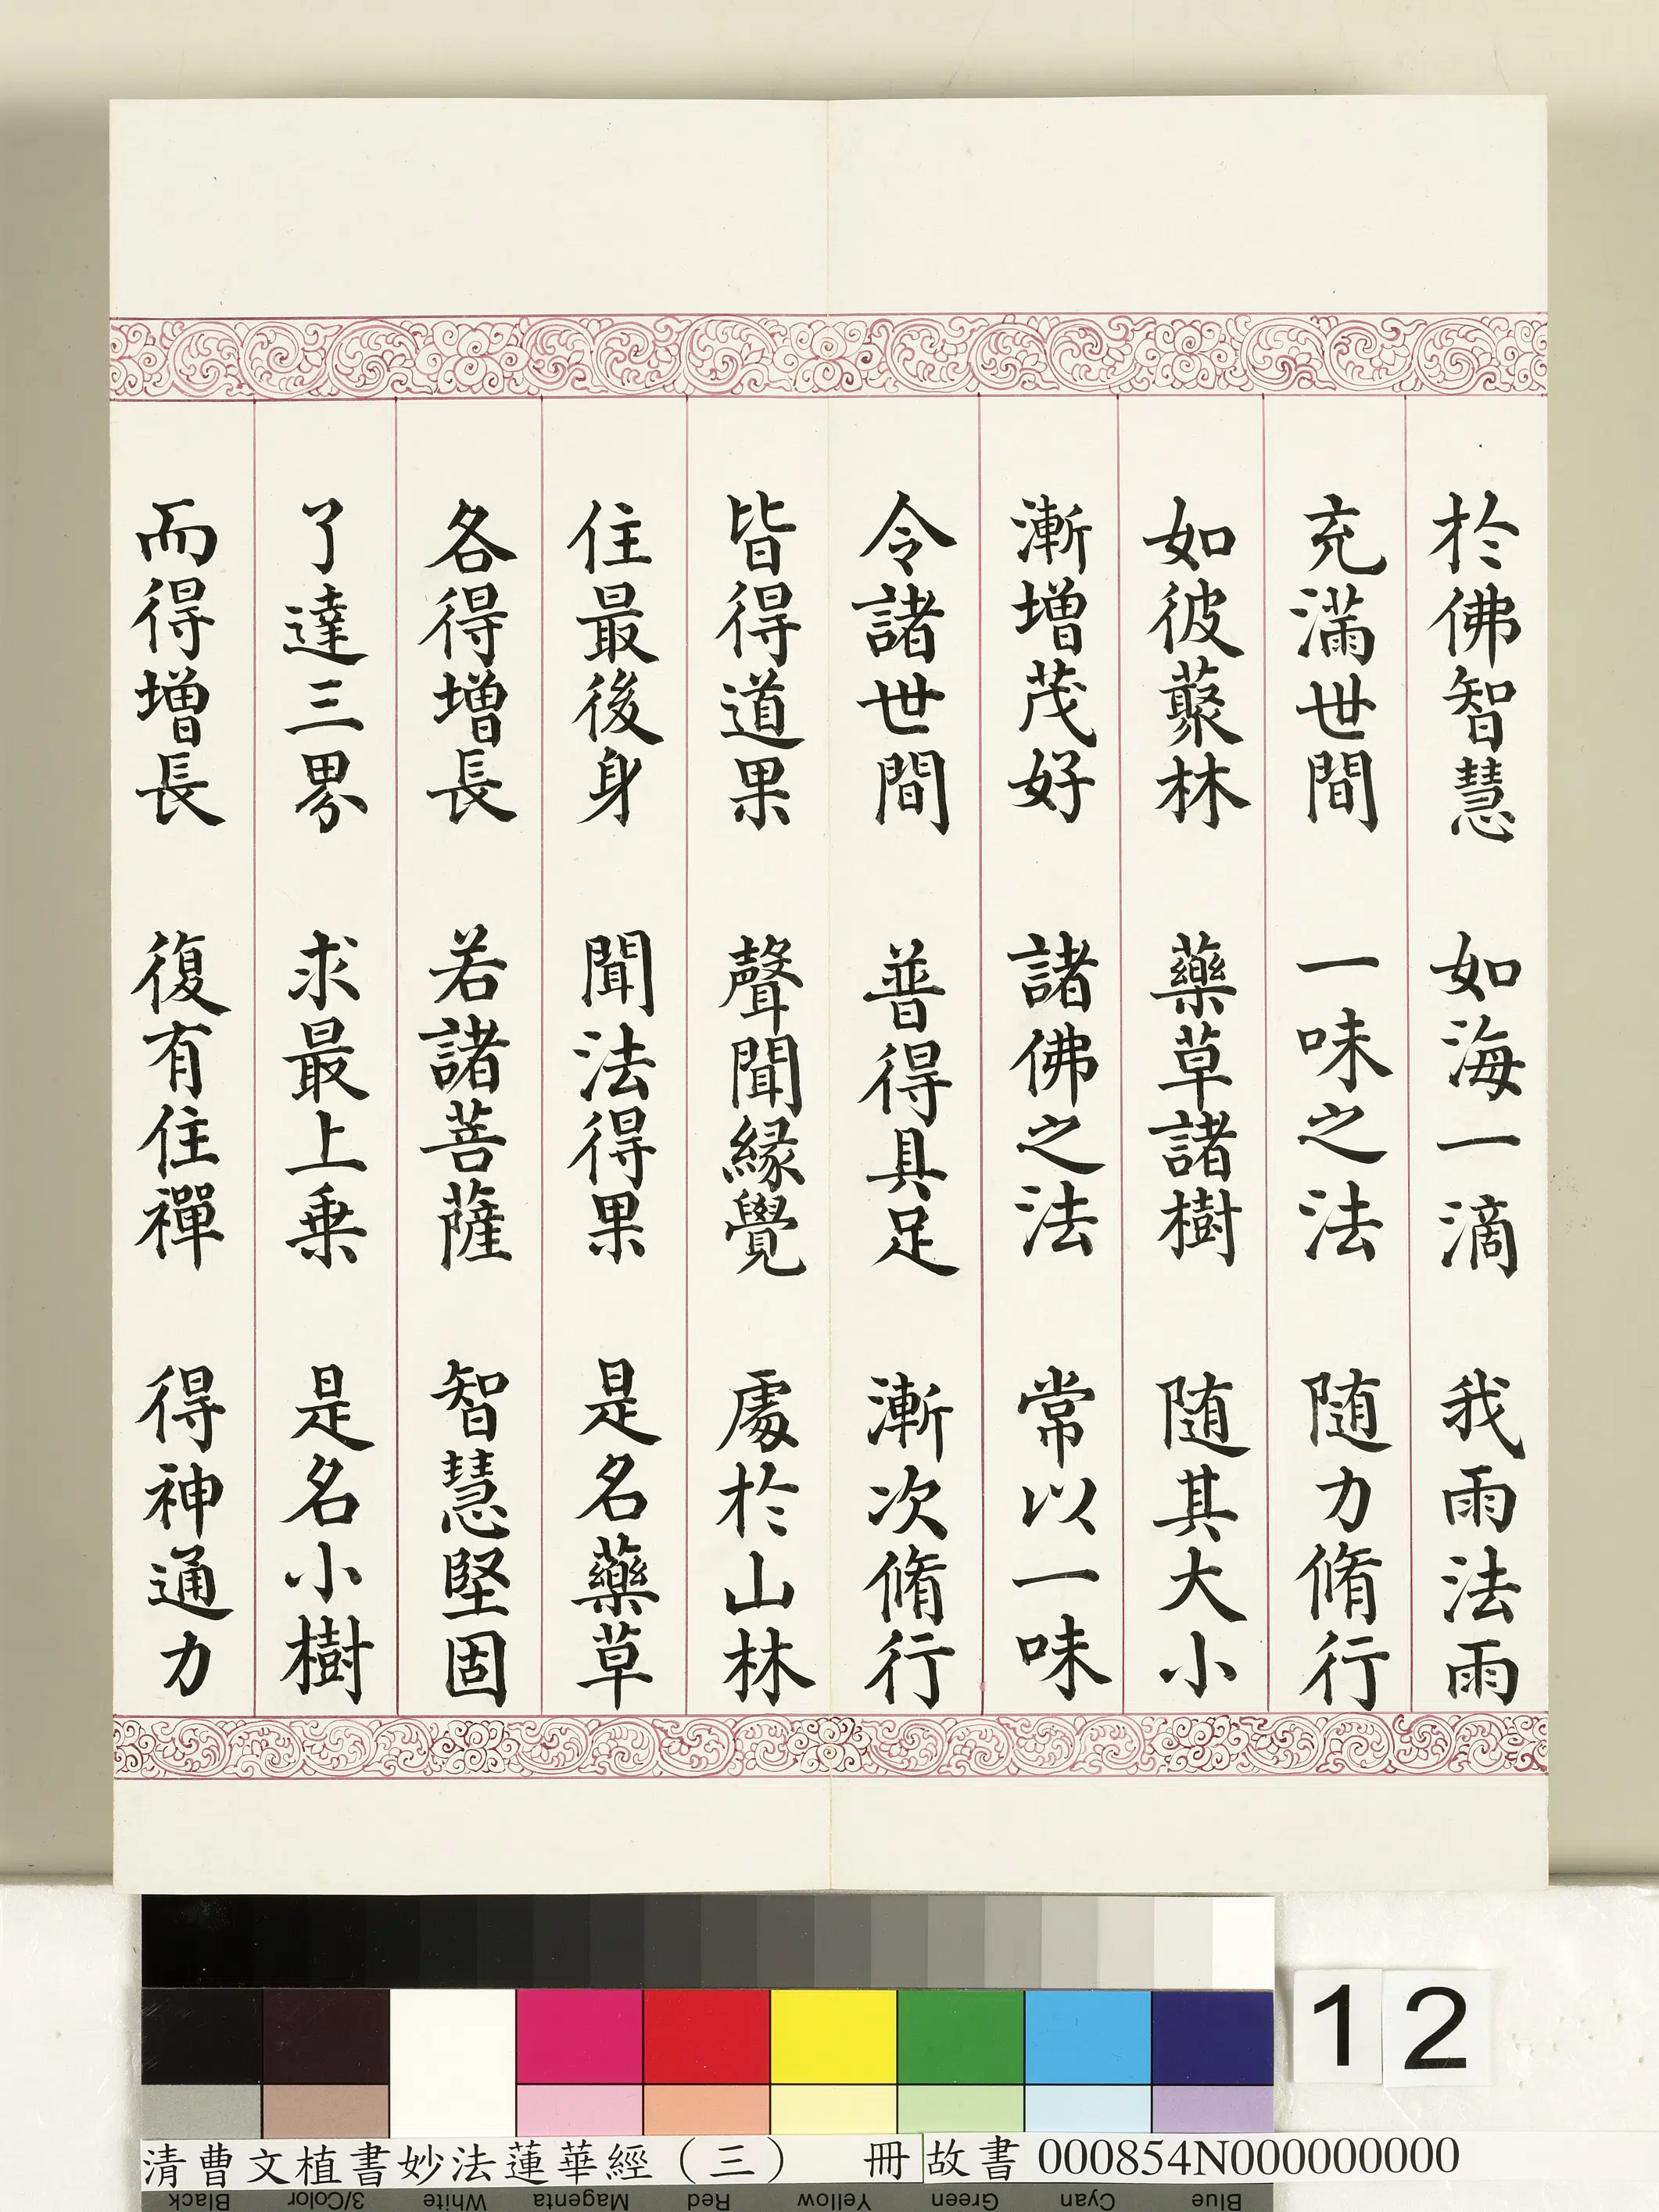 於佛智慧 如海一滴 我雨法雨
充滿世間 一味之法 随力脩行
如彼藂林 藥草諸樹 随其大小
漸增茂好 諸佛之法 常以一味
令諸世間 普得具足 漸次脩行
皆得道果 聲聞緣覺 處於山林
住最後身 聞法得果 是名藥草
各得增長 若諸菩薩 智慧堅固
了達三界 求最上乗 是名小樹
而得增長 復有住禪 得神通力
12
清曹文植書妙法蓮華經(三) 冊 故書 000854N000000000
Black 3/Color White Magenta Red Yellow Green Cyan Blue